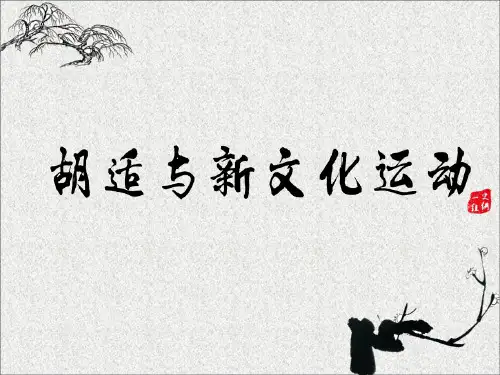 胡适与新文化运动